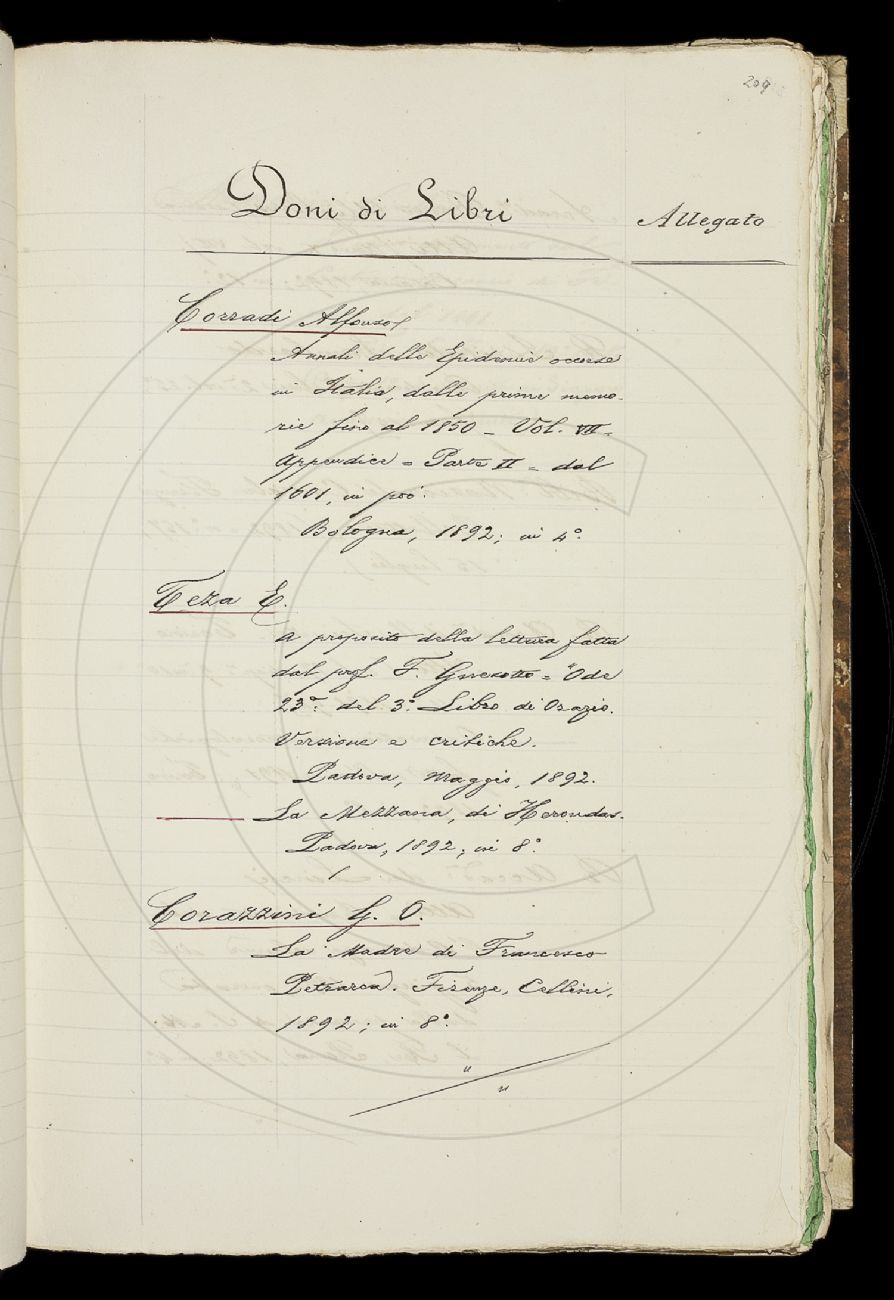 209
Doni di Libri
Allegato
Corradi Alfonso
Annali delle Epidemie occorse
in Italia, dalle prime memo-
rie fino al 1850 - Vol. VII -
Appendice = Parte II = dal
1601, in poi.
Bologna, 1892; in 4º.
Teza E.
A proposito della lettura fatta
dal prof. F. Gnesotto = "Ode
23ª. del 3º. Libro di Orazio.
Versione e critiche.
Padova, Maggio, 1892.
La Mezzana, di Herondas.
Padova, 1892; in 8º.
Corazzini G. O.
La Madre di Francesco
Petrarca. Firenze, Cellini,
1892; in 8º.
" "